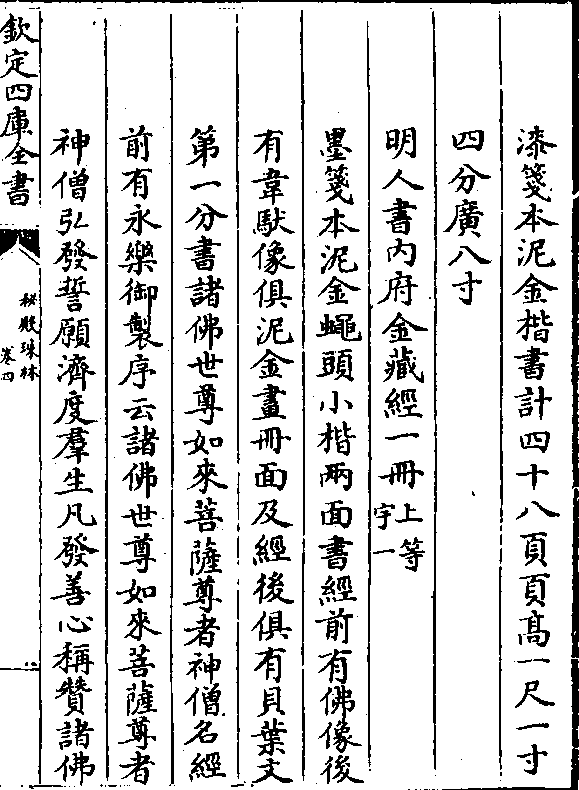 漆箋本泥金楷書計四十八頁頁高一尺一寸
四分廣八寸
明人書內府金藏經一冊上等
字一
墨箋本泥金蠅頭小楷兩面書經前有佛像後
有韋馱像俱泥金畫冊面及經後俱有貝葉文
第一分書諸佛世尊如來菩薩尊者神僧名經
前有永樂御製序云諸佛世尊如來菩薩尊者
神僧弘發誓願濟度羣生凡發善心稱贊諸佛
欽定四庫全書
秘殿珠林
卷四